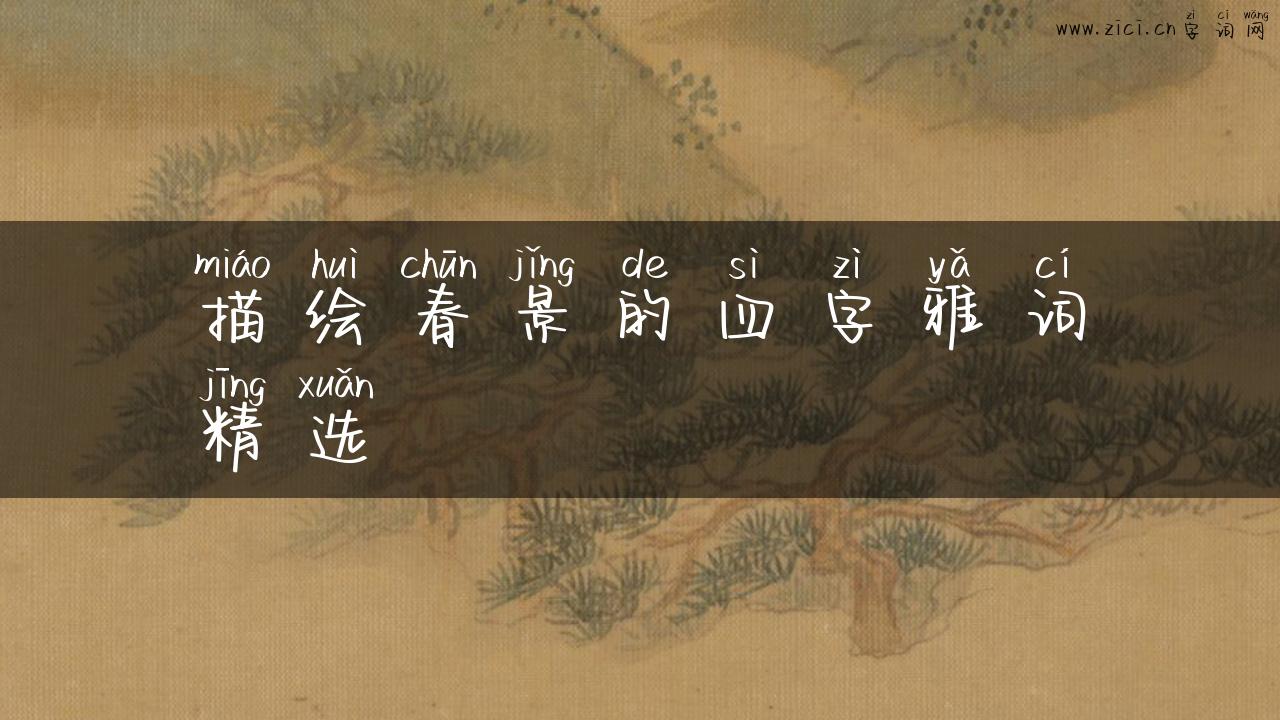 zì cí wǎng
www.zici.cn 字词网
miáo huì chūn jǐng de sì zì yǎ cí
描绘春景的四字雅词
jīng xuǎn
精选